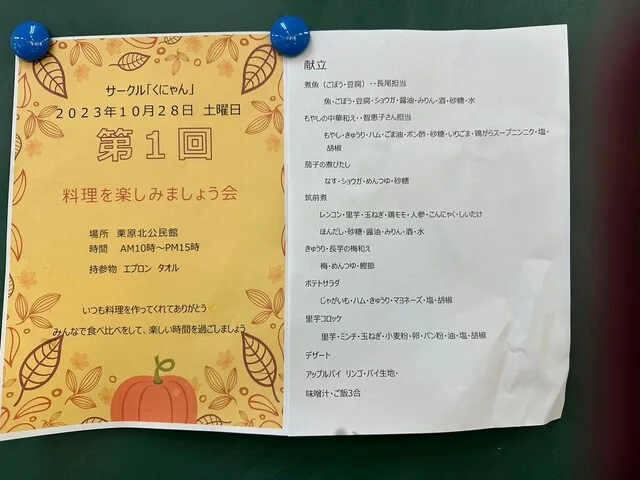 サークル「くにゃん」
2023年10月28日 土曜日
第1回
料理を楽しみましょう会
場所 栗原北公民館
時間 AM10時～PM15時
持参物 エプロン タオル
いつも料理を作ってくれてありがとう
みんなで食べ比べをして、楽しい時間を過ごしましょう
献立
煮魚（ごぼう・豆腐）・・長尾担当
魚・ごぼう・豆腐・ショウガ・醤油・みりん・酒・砂糖・水
もやしの中華和え・・智恵子さん担当
もやし・きゅうり・ハム・ごま油・ポン酢・砂糖・いりごま・鶏がらスープニンニク・塩・
胡椒
茄子の煮びたし
なす・ショウガ・めんつゆ・砂糖
筑前煮
レンコン・里芋・玉ねぎ・鶏モモ・人参・こんにゃく・しいたけ
ほんだし・砂糖・醤油・みりん・酒・水
きゅうり・長芋の梅和え
梅・めんつゆ・鰹節
ポテトサラダ
じゃがいも・ハム・きゅうり・マヨネーズ・塩・胡椒
里芋コロッケ
里芋・ミンチ・玉ねぎ・小麦粉・卵・パン粉・油・塩・胡椒
デザート
アップルパイ リンゴ・パイ生地・
味噌汁・ご飯3合